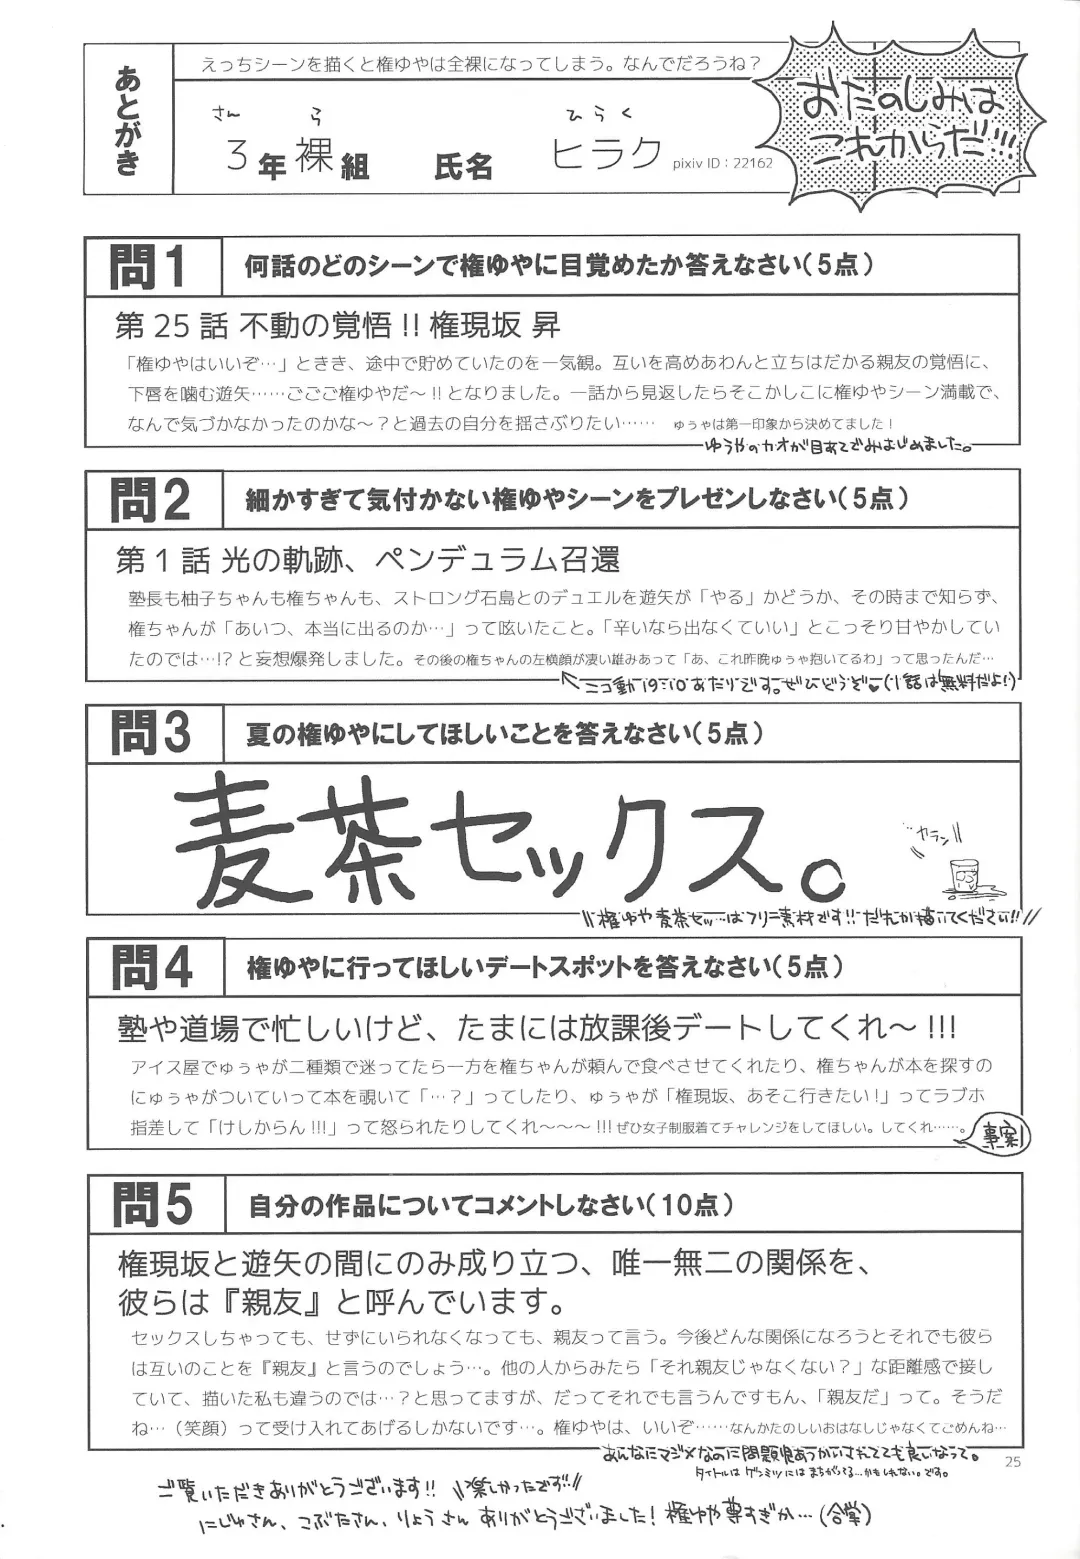 あとがき
えっちシーンを描くと権ゆやは全裸になってしまう。なんでだろうね？
さん　ら　ひらく
3年裸組　氏名　ヒラク　pixiv ID：22162
おたのしみは
これからだ!!!
問1　何話のどのシーンで権ゆやに目覚めたか答えなさい（5点）
第25話 不動の覚悟!! 権現坂 昇
「権ゆやはいいぞ…」ときき、途中で貯めていたのを一気観。互いを高めあわんと立ちはだかる親友の覚悟に、
下唇を噛む遊矢……ごごご権ゆやだ～!!となりました。一話から見返したらそこかしこに権ゆやシーン満載で、
なんで気づかなかったのかな～？と過去の自分を揺さぶりたい……　ゅぅゃは第一印象から決めてました！
ゆうやのカオが目あてでみはじめました。
問2　細かすぎて気付かない権ゆやシーンをプレゼンしなさい（5点）
第1話 光の軌跡、ペンデュラム召還
塾長も柚子ちゃんも権ちゃんも、ストロング石島とのデュエルを遊矢が「やる」かどうか、その時まで知らず、
権ちゃんが「あいつ、本当に出るのか…」って呟いたこと。「辛いなら出なくていい」とこっそり甘やかしてい
たのでは…!?と妄想爆発しました。その後の権ちゃんの左横顔が凄い雄みあって「あ、これ昨晩ゅぅゃ抱いてるわ」って思ったんだ…
ニコ動19:10あたりです。ぜひどうぞ♥(1話は無料だよ!)
問3　夏の権ゆやにしてほしいことを答えなさい（5点）
麦茶セックス。
カラン
権ゆや麦茶セッ…はフリー素材です!! だれか描いてください!!
問4　権ゆやに行ってほしいデートスポットを答えなさい（5点）
塾や道場で忙しいけど、たまには放課後デートしてくれ～!!!
アイス屋でゅぅゃが二種類で迷ってたら一方を権ちゃんが頼んで食べさせてくれたり、権ちゃんが本を探すの
にゅぅゃがついていって本を覗いて「…？」ってしたり、ゅぅゃが「権現坂、あそこ行きたい！」ってラブホ
指差して「けしからん!!!」って怒られたりしてくれ～～～!!!ぜひ女子制服着てチャレンジをしてほしい。してくれ……。
事案
問5　自分の作品についてコメントしなさい（10点）
権現坂と遊矢の間にのみ成り立つ、唯一無二の関係を、
彼らは『親友』と呼んでいます。
セックスしちゃっても、せずにいられなくなっても、親友って言う。今後どんな関係になろうとそれでも彼ら
は互いのことを『親友』と言うのでしょう…。他の人からみたら「それ親友じゃなくない？」な距離感で接し
ていて、描いた私も違うのでは…？と思ってますが、だってそれでも言うんですもん、「親友だ」って。そうだ
ね…（笑顔）って受け入れてあげるしかないです…。権ゆやは、いいぞ……なんかたのしいおはなしじゃなくてごめんね…
あんなにマジメなのに問題児あつかいされてても良いなって。
タイトルはゲンミツにはまちがってる…かもしれない。です。
25
ご覧いただきありがとうございます!! 楽しかったです!!
にじゅさん、こぶたさん、りょうさんありがとうございました! 権ゆや尊すぎか…(合掌)